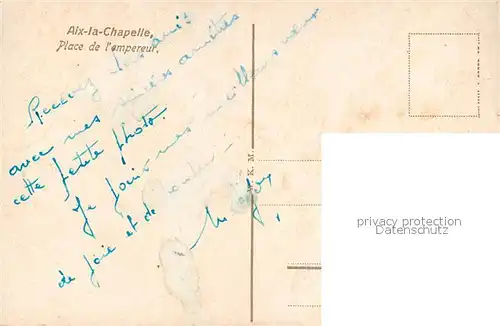 Aix-la-Chapelle,
Place de l'empereur.
Recevez
avec mes amitiés
cette petite photo.
Je joins mes meilleurs vœux
de joie et de
K. M.
privacy protection
Datenschutz